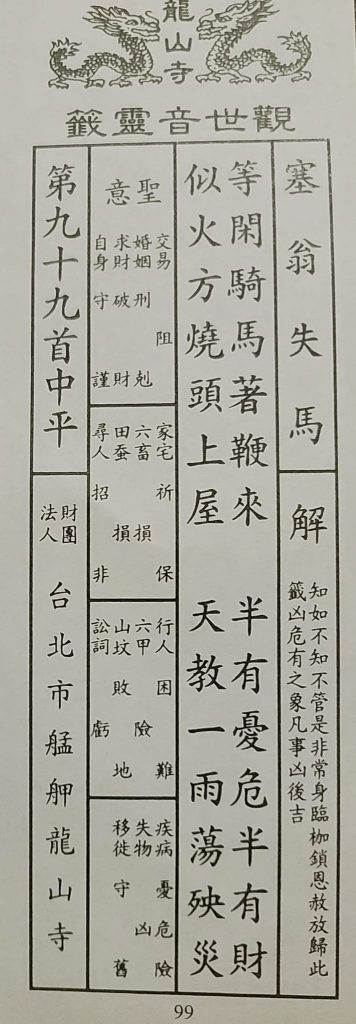 龍山寺
觀世音靈籤
塞翁失馬
解
知如不知不管是非常身臨枷鎖恩赦放歸此
籤凶危有之象凡事凶後吉
等閑騎馬著鞭來 半有憂危半有財
似火方燒頭上屋 天教一雨蕩殃災
聖意
交易 阻
婚姻 刑 剋
求財 破 財
自身 守 謹
家宅 祈 保
六畜 損
田蚕 損
尋人 招 非
行人 困 難
六甲 險
山坟 敗 地
訟詞 虧
疾病 憂 危 險
失物 凶
移徙 守 舊
第九十九首中平
財團
法人
台北市艋舺龍山寺
99